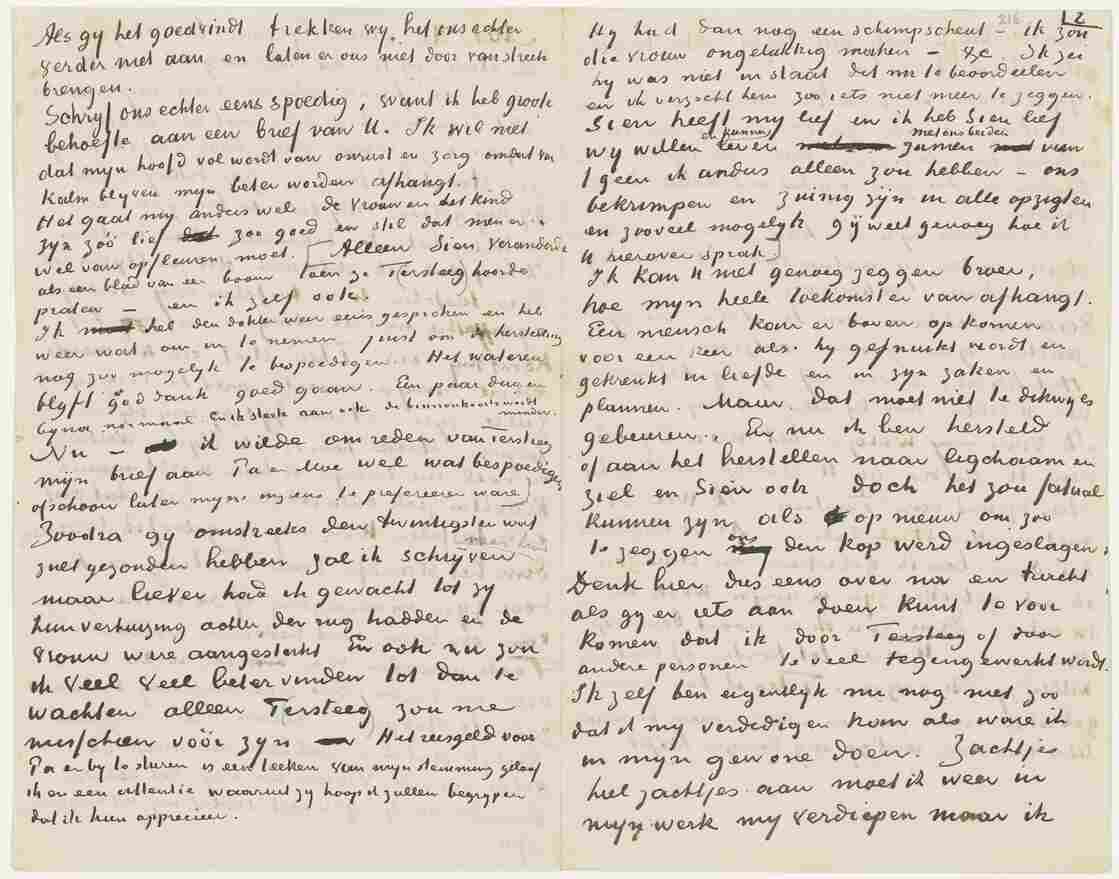 Als gy het goedvindt trekken wy het ons echter
verder niet aan en laten er ons niet door van streek
brengen.
Schryf ons echter eens spoedig, want ik heb groote
behoefte aan een brief van U. Ik wil niet
dat myn hoofd vol wordt van onrust en zorg omdat van
kalm blyven myn beter worden afhangt.
Het gaat my anders wel de vrouw en het kind
zyn zóó lief zoo goed en stil dat men er
wel van opfleuren moet. [Alleen Sien veranderde
als een blad van een boom toen ze Tersteeg hoorde
praten — en ik zelf ook.
Ik heb den dokter weer eens gesproken en heb
weer wat om in te nemen juist om de herstelling
nog zoo mogelyk te bespoedigen. Het wateren
blyft goddank goed gaan. Een paar dingen
byna normaal. En ik sterk aan ook de binnenkoorts wordt
minder.
Nu — ik wilde om reden van Tersteeg
myn brief aan Pa en Moe wel wat bespoedigen
ofschoon later myns inziens te prefereeren ware]
Zoodra gy omstreeks den twintigsten wat
zult gezonden hebben zal ik schrijven
maar liever had ik gewacht tot zy
hun verhuizing achter den rug hadden en de
vrouw ware aangesterkt En ook nu zou
ik veel veel beter vinden tot dan te
wachten alleen Tersteeg zou me
misschien vóór zyn — Het reisgeld voor
Pa er by te sturen is een teeken van myn stemming geloof
ik en een attentie waaruit zy hoop ik zullen begrypen
dat ik hun apprecieer.
216 2
Hy had dan nog een schimpscheut — ik zou
die vrouw ongelukkig maken — &c Ik zei
hy was niet in staat dit nu te beoordeelen
en ik verzocht hem zoo iets niet meer te zeggen.
Sien heeft my lief en ik heb Sien lief
en kunnen met ons beiden
wy willen leven zamen van
'tgeen ik anders alleen zou hebben — ons
bekrimpen en zuinig zyn in alle opzigten
en zooveel mogelyk gy weet genoeg hoe ik
U hierover sprak]
Ik kan U niet genoeg zeggen broer,
hoe myn heele toekomst er van afhangt.
Een mensch kan er boven op komen
voor een keer als hy gefnuikt wordt en
gekrenkt in liefde en in zyn zaken en
plannen. Maar dat moet niet te dikwyls
gebeuren. En nu ik ben hersteld
of aan het herstellen naar ligchaam en
ziel en Sien ook doch het zou fataal
kunnen zyn als op nieuw om zoo
ons
te zeggen den kop werd ingeslagen.
Denk hier dus eens over na en tracht
als gy er iets aan doen kunt te voor
komen dat ik door Tersteeg of door
andere personen te veel tegengewerkt wordt.
Ik zelf ben eigentlyk nu nog niet zoo
dat ik my verdedigen kan als ware ik
in myn gewone doen. Zachtjes
heel zachtjes aan moet ik weer in
myn werk my verdiepen maar ik